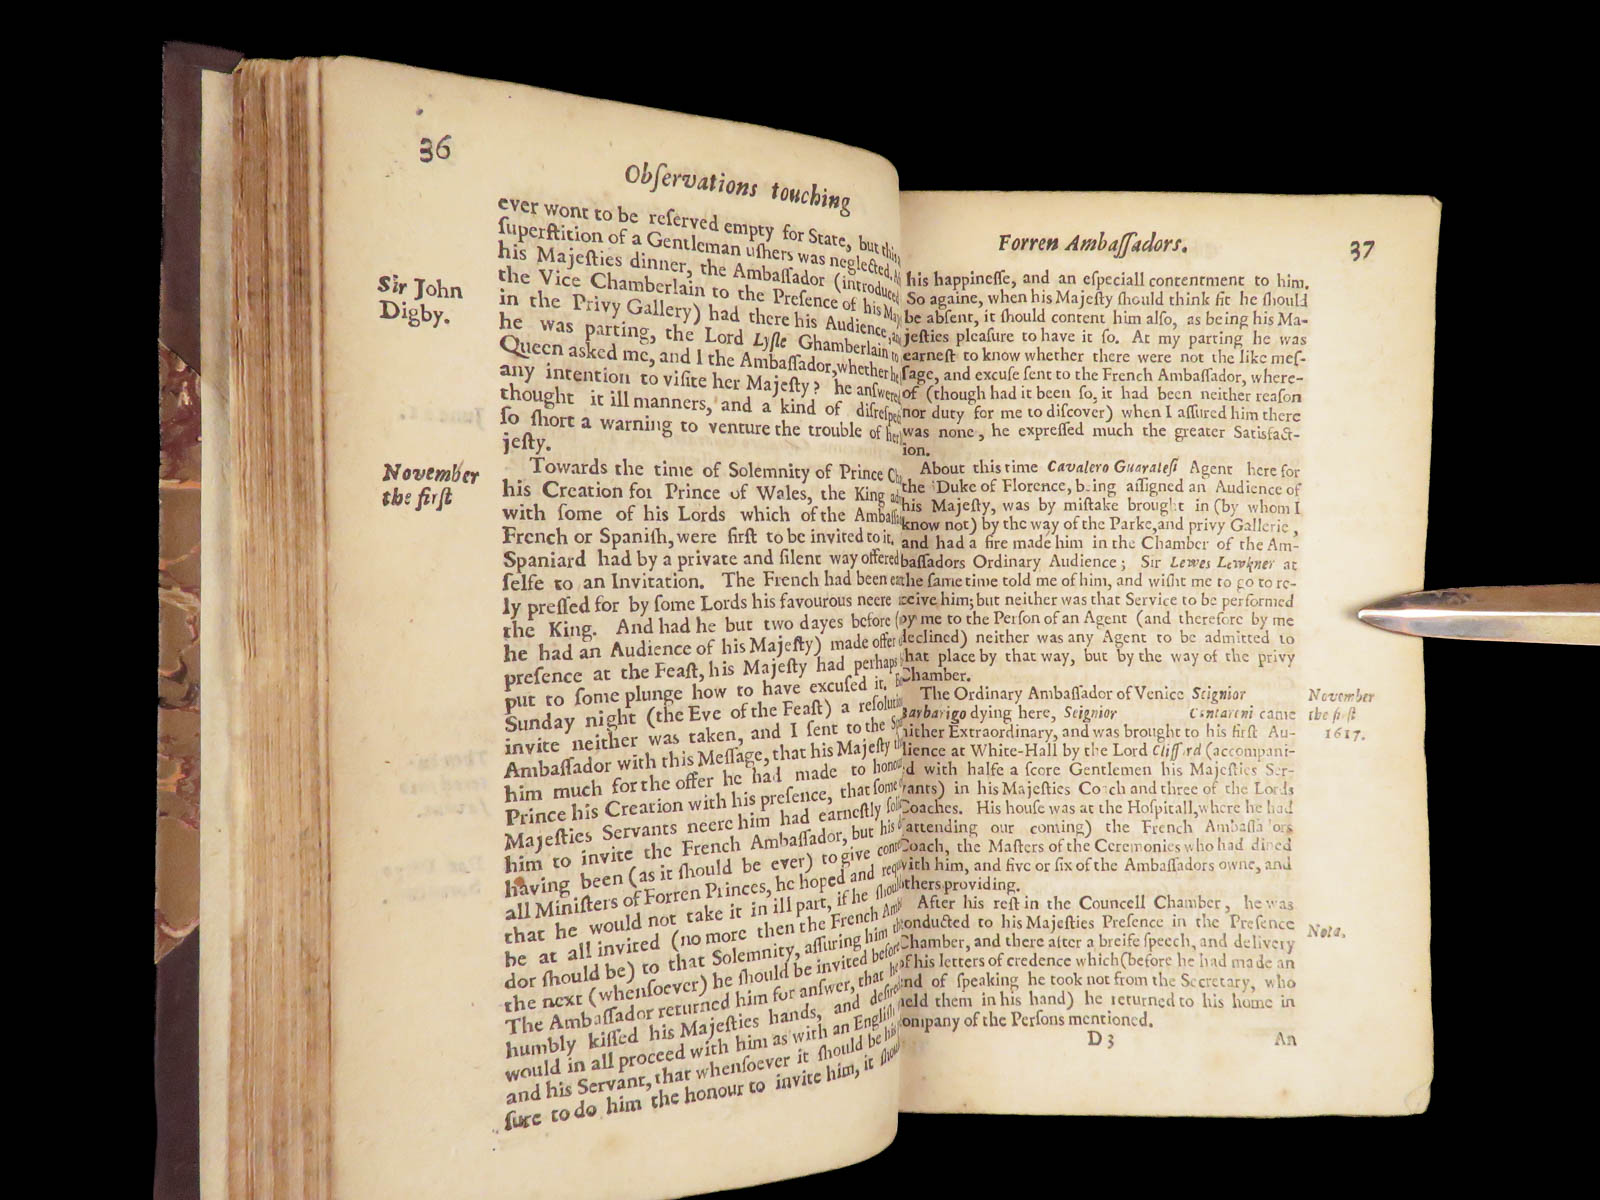 36
Obſervations touching
ever wont to be reſerved empty for State, but this
ſuperſtition of a Gentleman uſhers was neglected.
his Majeſties dinner, the Ambaſſador (introduced
the Vice Chamberlain to the Preſence of his
in the Privy Gallery) had there his Audience,
he was parting, the Lord Lyſle Ghamberlain to
Queen asked me, and I the Ambaſſador, whether he
any intention to viſite her Majeſty? he anſwered
thought it ill manners, and a kind of
ſo ſhort a warning to venture the trouble of her
jeſty.
Sir John
Digby.
November
the firſt
Towards the time of Solemnity of Prince
his Creation for Prince of Wales, the King
with ſome of his Lords which of the
French or Spaniſh, were firſt to be invited to it.
Spaniard had by a private and ſilent way offered
ſelfe to an Invitation. The French had been
ly preſſed for by ſome Lords his favourous neere
the King. And had he but two dayes before
he had an Audience of his Majeſty) made offer
preſence at the Feaſt, his Majeſty had perhaps
put to ſome plunge how to have excuſed it.
Sunday night (the Eve of the Feaſt) a
invite neither was taken, and I ſent to the
Ambaſſador with this Meſſage, that his Majeſty
him much for the offer he had made to
Prince his Creation with his preſence, that ſome
Majeſties Servants neere him had earneſtly
him to invite the French Ambaſſador, but his
having been (as it ſhould be ever) to give
all Miniſters of Forren Princes, he hoped and
that he would not take it in ill part, if he
be at all invited (no more then the French
dor ſhould be) to that Solemnity, aſſuring him
the next (whenſoever) he ſhould be invited before
The Ambaſſador returned him for anſwer, that he
humbly kiſſed his Majeſties hands, and
would in all proceed with him as with an Engliſh
and his Servant, that whenſoever it ſhould be his
ſure to do him the honour to invite him, it
Forren Ambaſſadors.
37
his happineſſe, and an eſpeciall contentment to him.
So againe, when his Majeſty ſhould think fit he ſhould
be abſent, it ſhould content him alſo, as being his Ma-
jeſties pleaſure to have it ſo. At my parting he was
earneſt to know whether there were not the like meſ-
ſage, and excuſe ſent to the French Ambaſſador, where-
of (though had it been ſo, it had been neither reaſon
nor duty for me to diſcover) when I aſſured him there
was none, he expreſſed much the greater Satisfact-
ion.
About this time Cavalero Guarateſi Agent here for
the Duke of Florence, being aſſigned an Audience of
his Majeſty, was by miſtake brought in (by whom I
know not) by the way of the Parke, and privy Gallerie,
and had a fire made him in the Chamber of the Am-
baſſadors Ordinary Audience; Sir Lewes Lewkner at
the ſame time told me of him, and wiſht me to go to re-
ceive him; but neither was that Service to be performed
by me to the Perſon of an Agent (and therefore by me
declined) neither was any Agent to be admitted to
that place by that way, but by the way of the privy
Chamber.
The Ordinary Ambaſſador of Venice Seignior
Barbarigo dying here, Seignior Contareni came
hither Extraordinary, and was brought to his firſt Au-
dience at White-Hall by the Lord Clifford (accompani-
ed with halfe a ſcore Gentlemen his Majeſties Ser-
vants) in his Majeſties Coach and three of the Lords
Coaches. His houſe was at the Hoſpitall, where he had
(attending our coming) the French Ambaſſadors
Coach, the Maſters of the Ceremonies who had dined
with him, and five or ſix of the Ambaſſadors owne, and
others providing.
November
the firſt
1617.
After his reſt in the Councell Chamber, he was
conducted to his Majeſties Preſence in the Preſence
Chamber, and there after a breife ſpeech, and delivery
of his letters of credence which (before he had made an
end of ſpeaking he took not from the Secretary, who
held them in his hand) he returned to his home in
company of the Perſons mentioned.
Nota.
D 3
An